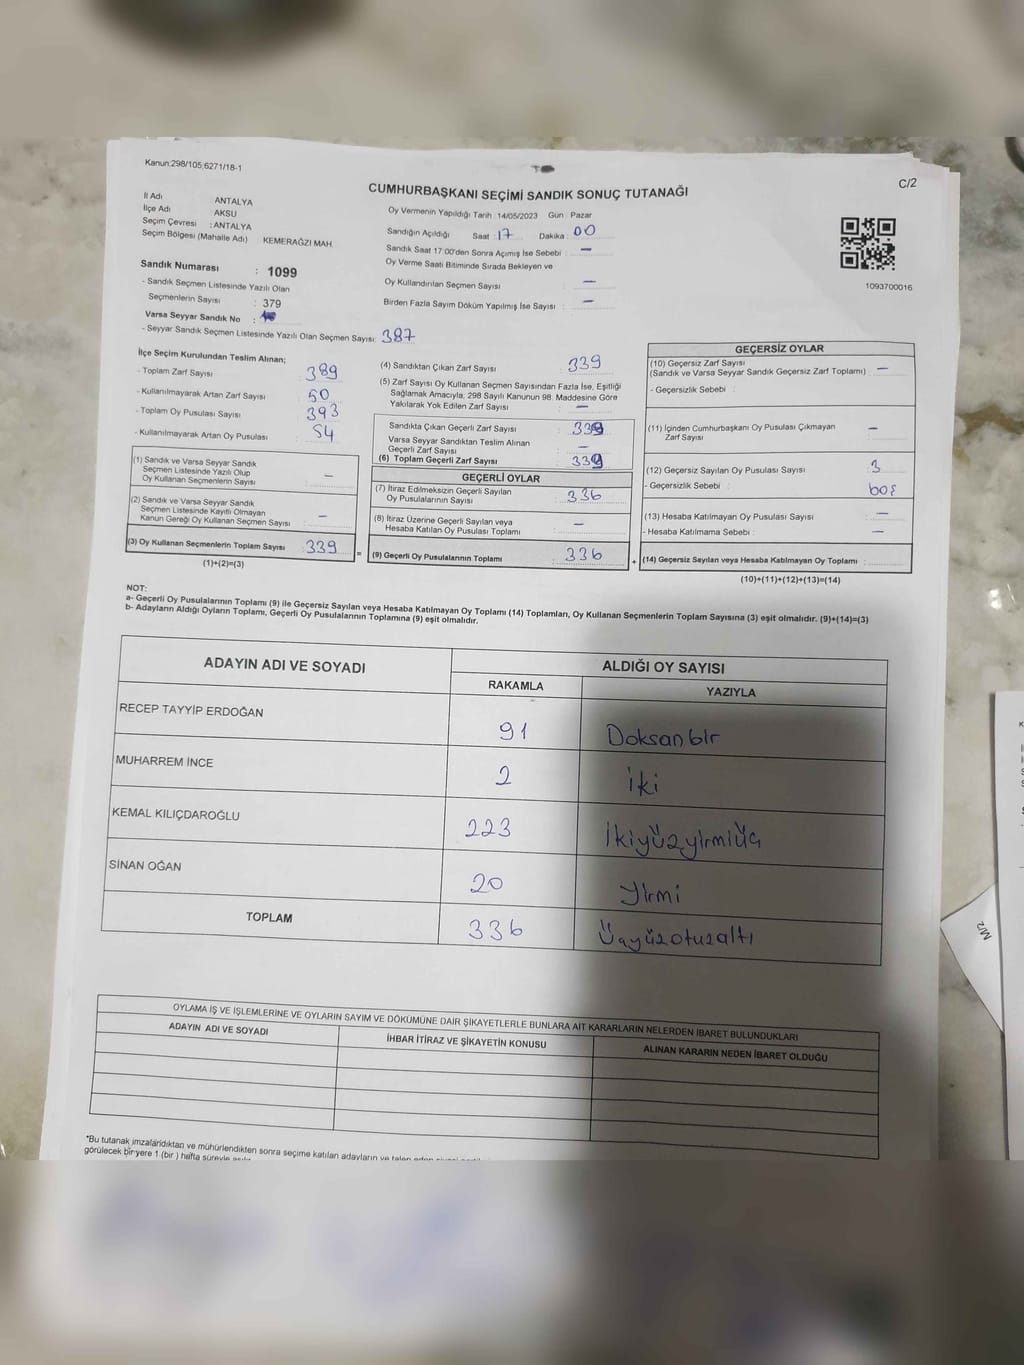 Kanun:298/105,6271/18-1
C/2
CUMHURBAŞKANI SEÇİMİ SANDIK SONUÇ TUTANAĞI
İl Adı ANTALYA
İlçe Adı AKSU
Seçim Çevresi : ANTALYA
Seçim Bölgesi (Mahalle Adı) : KEMERAĞZI MAH.
Oy Vermenin Yapıldığı Tarih : 14/05/2023 Gün : Pazar
Sandığın Açıldığı Saat : 17 Dakika : 00
Sandık Saat 17:00'den Sonra Açımış İse Sebebi : —
Oy Verme Saati Bitiminde Sırada Bekleyen ve
Oy Kullandırılan Seçmen Sayısı : —
Birden Fazla Sayım Döküm Yapılmış İse Sayısı : —
1093700016
Sandık Numarası : 1099
- Sandık Seçmen Listesinde Yazılı Olan
Seçmenlerin Sayısı : 379
Varsa Seyyar Sandık No :
- Seyyar Sandık Seçmen Listesinde Yazılı Olan Seçmen Sayısı: 387
İlçe Seçim Kurulundan Teslim Alınan;
- Toplam Zarf Sayısı : 389
- Kullanılmayarak Artan Zarf Sayısı : 50
- Toplam Oy Pusulası Sayısı : 393
- Kullanılmayarak Artan Oy Pusulası : 54
(1) Sandık ve Varsa Seyyar Sandık
Seçmen Listesinde Yazılı Olup
Oy Kullanan Seçmenlerin Sayısı : —
(2) Sandık ve Varsa Seyyar Sandık
Seçmen Listesinde Kayıtlı Olmayan
Kanun Gereği Oy Kullanan Seçmen Sayısı : —
(3) Oy Kullanan Seçmenlerin Toplam Sayısı : 339
(1)+(2)=(3)
=
(4) Sandıktan Çıkan Zarf Sayısı : 339
(5) Zarf Sayısı Oy Kullanan Seçmen Sayısından Fazla İse, Eşitliği
Sağlamak Amacıyla, 298 Sayılı Kanunun 98. Maddesine Göre
Yakılarak Yok Edilen Zarf Sayısı : —
Sandıkta Çıkan Geçerli Zarf Sayısı : 339
Varsa Seyyar Sandıktan Teslim Alınan
Geçerli Zarf Sayısı : —
(6) Toplam Geçerli Zarf Sayısı : 339
GEÇERLİ OYLAR
(7) İtiraz Edilmeksizin Geçerli Sayılan
Oy Pusulalarının Sayısı : 336
(8) İtiraz Üzerine Geçerli Sayılan veya
Hesaba Katılan Oy Pusulası Toplamı : —
(9) Geçerli Oy Pusulalarının Toplamı : 336
+
GEÇERSİZ OYLAR
(10) Geçersiz Zarf Sayısı
(Sandık ve Varsa Seyyar Sandık Geçersiz Zarf Toplamı) : —
- Geçersizlik Sebebi :
(11) İçinden Cumhurbaşkanı Oy Pusulası Çıkmayan
Zarf Sayısı : —
(12) Geçersiz Sayılan Oy Pusulası Sayısı : 3
- Geçersizlik Sebebi : boş
(13) Hesaba Katılmayan Oy Pusulası Sayısı : —
- Hesaba Katılmama Sebebi : —
(14) Geçersiz Sayılan veya Hesaba Katılmayan Oy Toplamı :
(10)+(11)+(12)+(13)=(14)
NOT:
a- Geçerli Oy Pusulalarının Toplamı (9) ile Geçersiz Sayılan veya Hesaba Katılmayan Oy Toplamı (14) Toplamları, Oy Kullanan Seçmenlerin Toplam Sayısına (3) eşit olmalıdır. (9)+(14)=(3)
b- Adayların Aldığı Oyların Toplamı, Geçerli Oy Pusulalarının Toplamına (9) eşit olmalıdır.
ADAYIN ADI VE SOYADI ALDIĞI OY SAYISI
RAKAMLA YAZIYLA
RECEP TAYYİP ERDOĞAN 91 Doksanbir
MUHARREM İNCE 2 iki
KEMAL KILIÇDAROĞLU 223 İkiyüzyirmiüç
SİNAN OĞAN 20 Yirmi
TOPLAM 336 Üçyüzotuzaltı
OYLAMA İŞ VE İŞLEMLERİNE VE OYLARIN SAYIM VE DÖKÜMÜNE DAİR ŞİKAYETLERLE BUNLARA AİT KARARLARIN NELERDEN İBARET BULUNDUKLARI
ADAYIN ADI VE SOYADI İHBAR İTİRAZ VE ŞİKAYETİN KONUSU ALINAN KARARIN NEDEN İBARET OLDUĞU
*Bu tutanak imzalandıktan ve mühürlendikten sonra seçime katılan adayların ve
görülecek bir yere 1 (bir) hafta süreyle
M/2